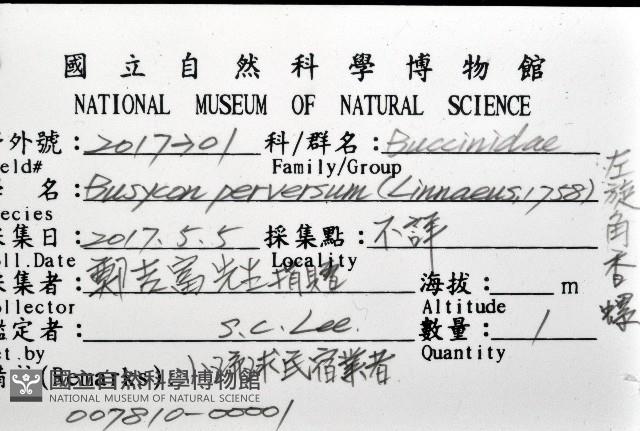 國立自然科學博物館
NATIONAL MUSEUM OF NATURAL SCIENCE
外號：2017→01 科/群名：Buccinidae
eld# Family/Group
名：Busycon perversum (Linnaeus, 1758)
ecies
集日：2017.5.5 採集點：不詳
ll.Date Locality
集者：鄭吉富先生捐贈 海拔：____m
llector Altitude
定者：S.C. Lee. 數量：1
et.by Quantity
(Remarks) 小琉球民宿業者
007810-00001
左旋角香螺
國立自然科學博物館
NATIONAL MUSEUM OF NATURAL SCIENCE